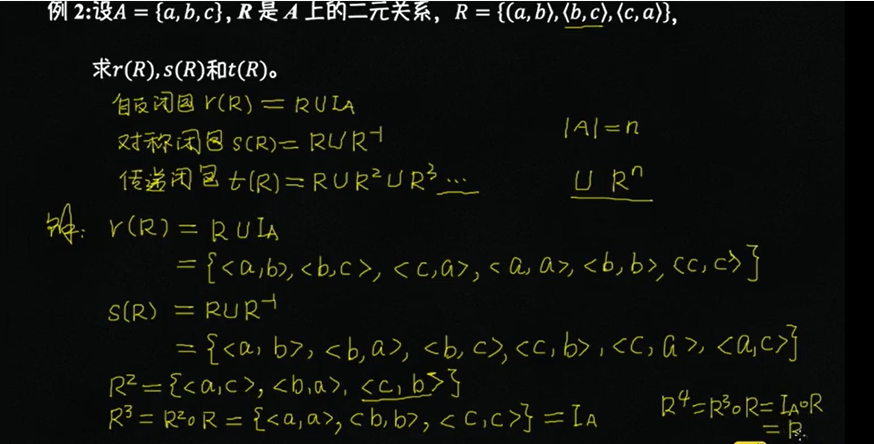 例 2:设A = {a, b, c}, R 是 A 上的二元关系, R = {(a, b⟩, ⟨b, c⟩, ⟨c, a⟩},
求r(R), s(R)和t(R)。
自反闭包 r(R) = R∪I_A
对称闭包 s(R) = R∪R⁻¹
|A| = n
传递闭包 t(R) = R∪R²∪R³ …
∪ Rⁿ
解: r(R) = R∪I_A
= {<a,b>, <b,c>, <c,a>, <a,a>, <b,b>, <c,c>}
s(R) = R∪R⁻¹
= {<a,b>, <b,a>, <b,c>, <c,b>, <c,a>, <a,c>}
R² = {<a,c>, <b,a>, <c,b>}
R³ = R²∘R = {<a,a>, <b,b>, <c,c>} = I_A
R⁴ = R³∘R = I_A∘R
= R